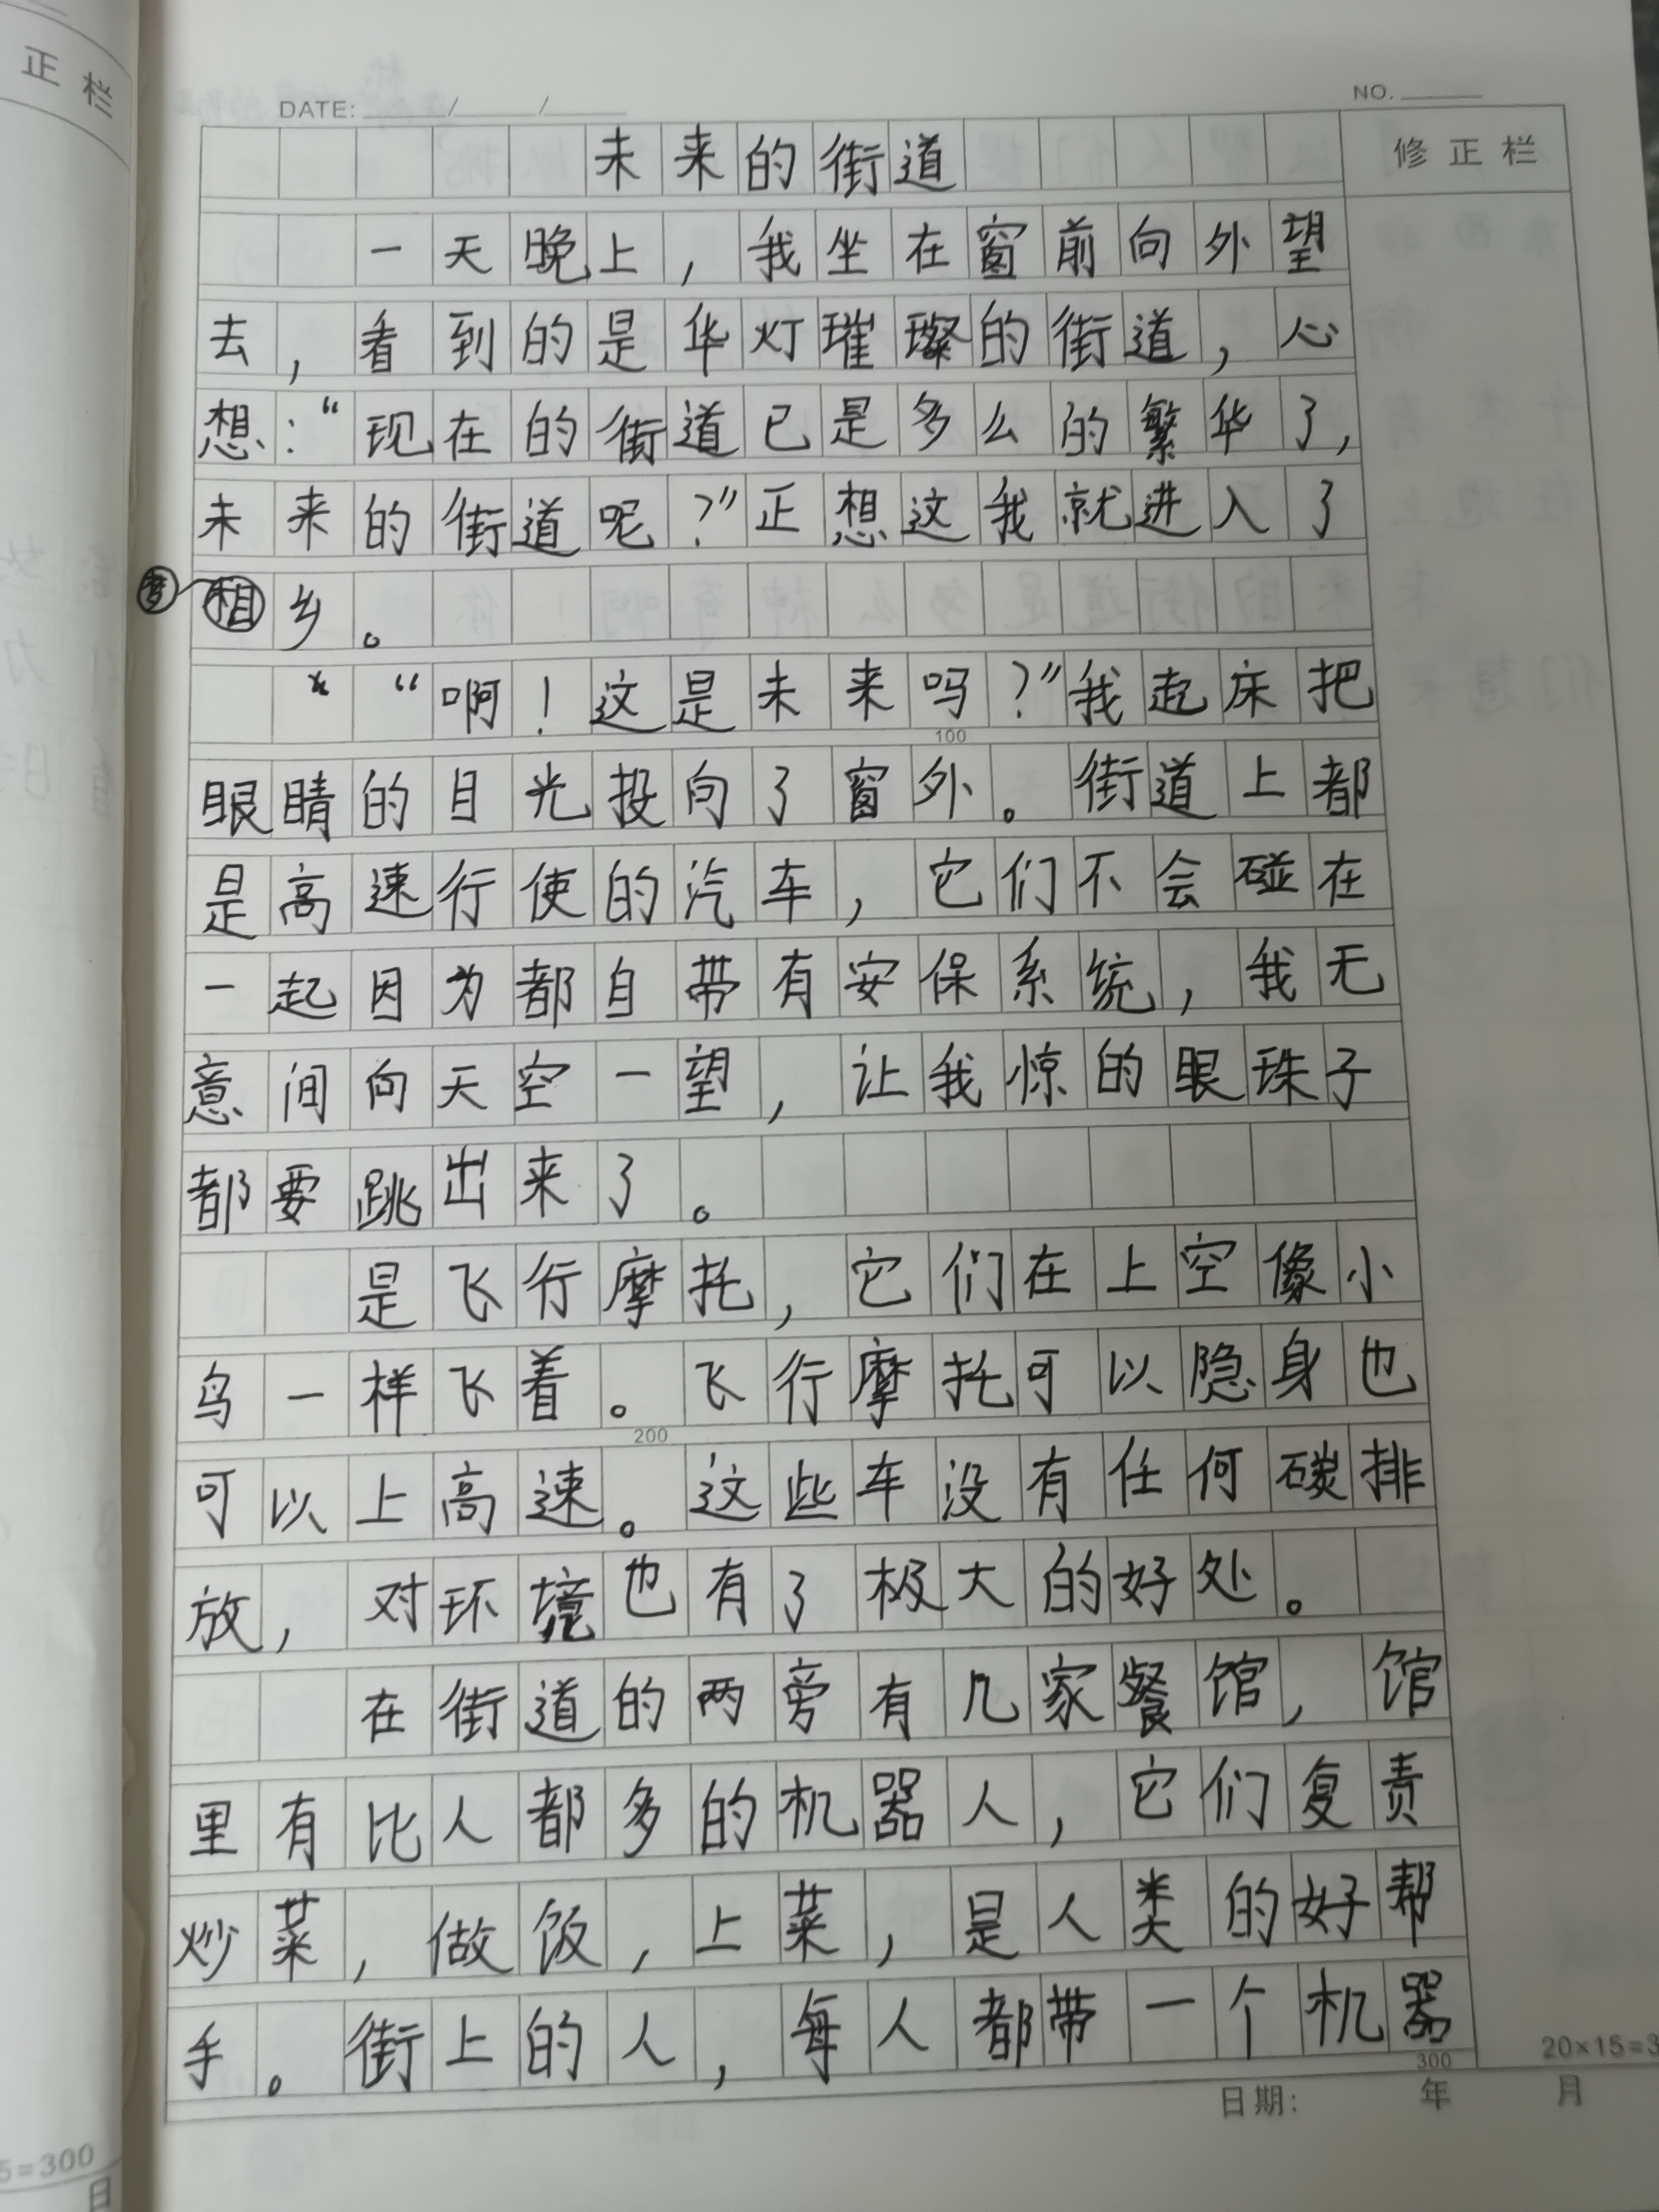 正栏
DATE: / /
NO.
未来的街道
修正栏
一天晚上，我坐在窗前向外望
去，看到的是华灯璀璨的街道，心
想：“现在的街道已是多么的繁华了，
未来的街道呢？”正想这我就进入了
梦
相乡。
“啊！这是未来吗？”我起床把
100
眼睛的目光投向了窗外。街道上都
是高速行使的汽车，它们不会碰在
一起因为都自带有安保系统，我无
意间向天空一望，让我惊的眼珠子
都要跳出来了。
是飞行摩托，它们在上空像小
鸟一样飞着。飞行摩托可以隐身也
200
可以上高速。这些车没有任何碳排
放，对环境也有了极大的好处。
在街道的两旁有几家餐馆，馆
里有比人都多的机器人，它们复责
炒菜，做饭，上菜，是人类的好帮
手。街上的人，每人都带一个机器
300
20×15=3
日期： 年 月
5=300
日